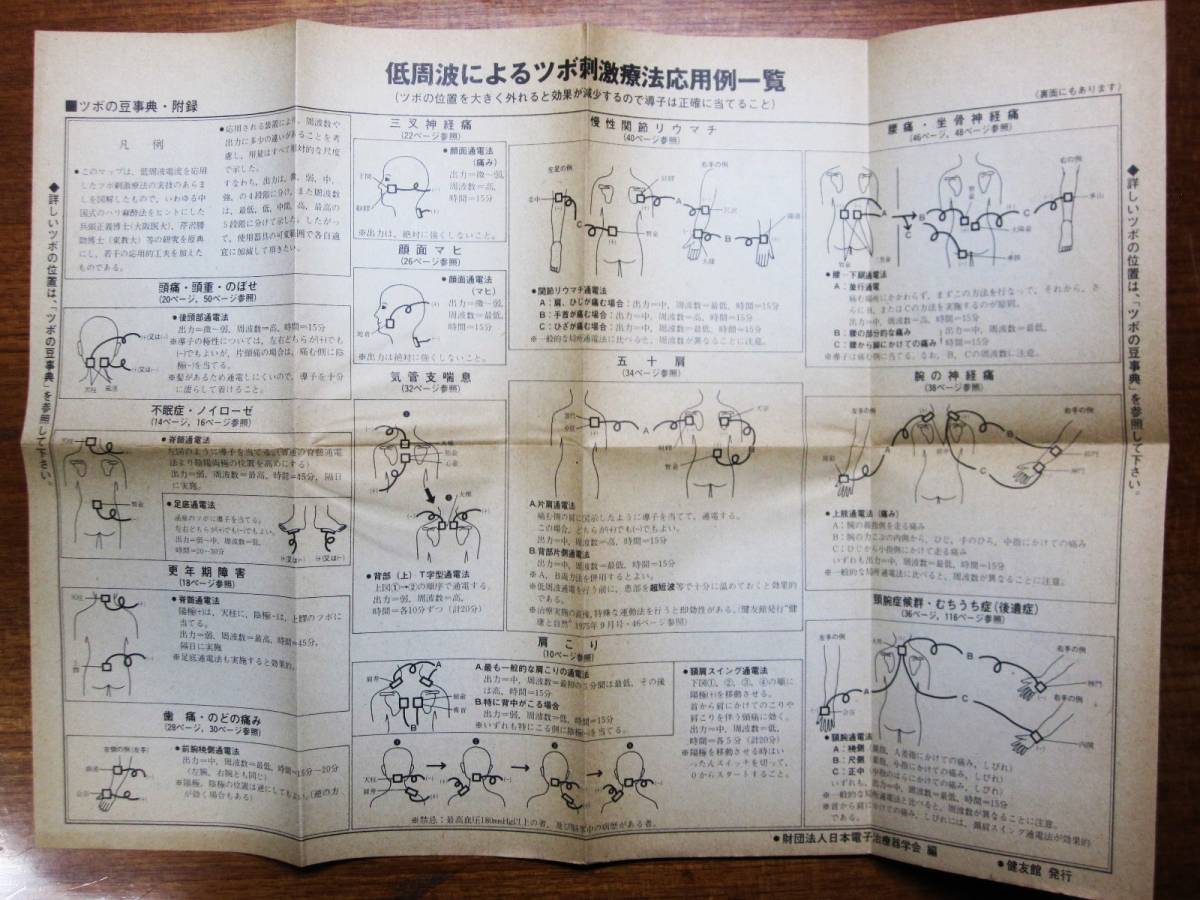 低周波によるツボ刺激療法応用例一覧
(ツボの位置を大きく外れると効果が減少するので導子は正確に当てること)
■ツボの豆事典・附録
(裏面にもあります)
◆詳しいツボの位置は、「ツボの豆事典」を参照して下さい。
凡例
●このマップは、低周波電流を応用
したツボ刺激療法の実技のあらま
しを図解したもので、いわゆる中
国式のハリ麻酔法をヒントにした
兵頭正義博士(大阪医大)、芹沢勝
助博士(東教大)等の研究を原典
にし、若干の応用的工夫を加えた
ものである。
●応用される装置により、周波数や
出力に多少の違いがあることを考
慮し、用量はすべて相対的な尺度
で示した。
すなわち、出力は、微、弱、中、
強、の4段階に分け、また周波数
は、最低、低、中、高、最高の
5段階に分けて示した。したがっ
て、使用器具の可変範囲で各自適
宜に加減して頂きたい。
頭痛・頭重・のぼせ
(20ページ、50ページ参照)
●後頭部通電法
出力=微〜弱、周波数=高、時間=15分
※導子の極性については、左右どちらが(+)でも
(−)でもよいが、片頭痛の場合は、痛む側に陰
極(−)を当てる。
※髪があるため通電しにくいので、導子を十分
に濡らして着けること。
(+)又は(−)
(+)又は(−)
天柱
風池
不眠症・ノイローゼ
(14ページ、16ページ参照)
●脊髄通電法
左図のように導子を当てる。(普通の脊髄通電
法より陰陽両極の位置を高めにする)
出力=弱、周波数=最高、時間=45分、隔日
に実施。
●足底通電法
左右どちらが(+)でも(−)でもよい。
出力=弱〜中、周波数=低、
時間=20〜30分
更年期障害
(18ページ参照)
●脊髄通電法
陽極(+)は、天柱に、陰極(−)は、上髎のツボに
当てる。
出力=弱、周波数=最高、時間=45分、
隔日に実施
※足底通電法も実施すると効果的。
歯痛・のどの痛み
(28ページ、30ページ参照)
左側の例(左手)
●前腕橈側通電法
出力=中、周波数=最低、時間=15分〜20分
(左腕、右腕とも同じ)
※陽極、陰極の位置は逆にしてもよい。(逆の方
が効く場合もある)
三叉神経痛
(22ページ参照)
●顔面通電法
(痛み)
出力=微〜弱、
周波数=高、
時間=15分
※出力は、絶対に強くしないこと。
顔面マヒ
(26ページ参照)
●顔面通電法
(マヒ)
出力=微〜弱、
周波数=最低、
時間=15分
地倉
※出力は絶対に強くしないこと。
気管支喘息
(32ページ参照)
●背部(上)T字型通電法
上図①→②の順序で通電する。
出力=中、周波数=高、
時間=各10分ずつ(計20分)
慢性関節リウマチ
(40ページ参照)
左足の例
右手の例
●関節リウマチ通電法
A:肩、ひじが痛む場合:出力=中、周波数=最低、時間=15分
B:手首が痛む場合:出力=中、周波数=高、時間=15分
C:ひざが痛む場合:出力=中、周波数=最低、時間=15分
※一般的な局所通電法に比べると、周波数が異なることに注意。
五十肩
(34ページ参照)
A.片肩通電法
痛む側の肩に図示したように導子を当てて、通電する。
この場合、どちらが(+)でも(−)でもよい。
出力=中、周波数=高、時間=15分
B.背部片側通電法
※A、B両方法を併用するとよい。
※低周波通電を行う前に、患部を超短波等で十分に温めておくと効果的
である。
※治療実施の直後、特殊な運動法を行うと即効性がある。(健友館発行"健
康と自然"1975年9月号・46ページ参照)
肩こり
(10ページ参照)
A.最も一般的な肩こりの通電法
出力=中、周波数=最初の5分間は最低、その後
は高、時間=15分
B.特に背中がこる場合
出力=中、周波数=低、時間=15分
※いずれも特にこる側に陰極(−)を当てる。
肩井
天柱
肩井
●頸肩スイング通電法
下図①、②、③、④の順に
陽極(+)を移動させる。
首から肩にかけてのこりや
肩こりを伴う頭痛に効く。
出力=中、周波数=最低、
時間=各5分(計20分)
※陽極を移動させる時はい
ったんスイッチを切って、
0からスタートすること。
※禁忌:最高血圧180mmHg以上の者、及び脳卒中の病歴がある者。
腰痛・坐骨神経痛
(46ページ、48ページ参照)
右の例
●腰−下腿通電法
A:並行通電
痛む場所にかかわらず、まずこの方法を行なって、それから、さ
らにB、またはCの方法を実施するのが原則。
出力=中、周波数=高、時間=15分
B:腰の部分的な痛み
C:腰から脚にかけての痛み
出力=中、周波数=最低、
時間=15分
※導子は痛む側に当てる。なお、B、Cの周波数に注意。
腕の神経痛
(38ページ参照)
左手の例
右手の例
●上肢通電法(痛み)
A:腕の親指側を走る痛み
B:腕の力こぶの内側から、ひじ、手のひら、中指にかけての痛み
C:ひじから小指側にかけて走る痛み
いずれも出力=中、周波数=最低、時間=15分
※一般的な局所通電法に比べると、周波数が異なることに注意。
頸腕症候群・むちうち症(後遺症)
(36ページ、116ページ参照)
左手の例
右手の例
右手の例
神門
内関
●頸腕通電法
A:橈側(親指、人差指にかけての痛み、しびれ)
B:尺側(薬指、小指にかけての痛み、しびれ)
C:正中(中指のはらにかけての痛み、しびれ)
いずれも、出力=中、周波数=最低、時間=15分
※一般的な局所通電法と比べると、周波数が異なることに注意。
※首から肩にかけての痛み、しびれには、頸肩スイング通電法が効果的
である。
●財団法人日本電子治療器学会 編
●健友館 発行
◆詳しいツボの位置は、「ツボの豆事典」を参照して下さい。